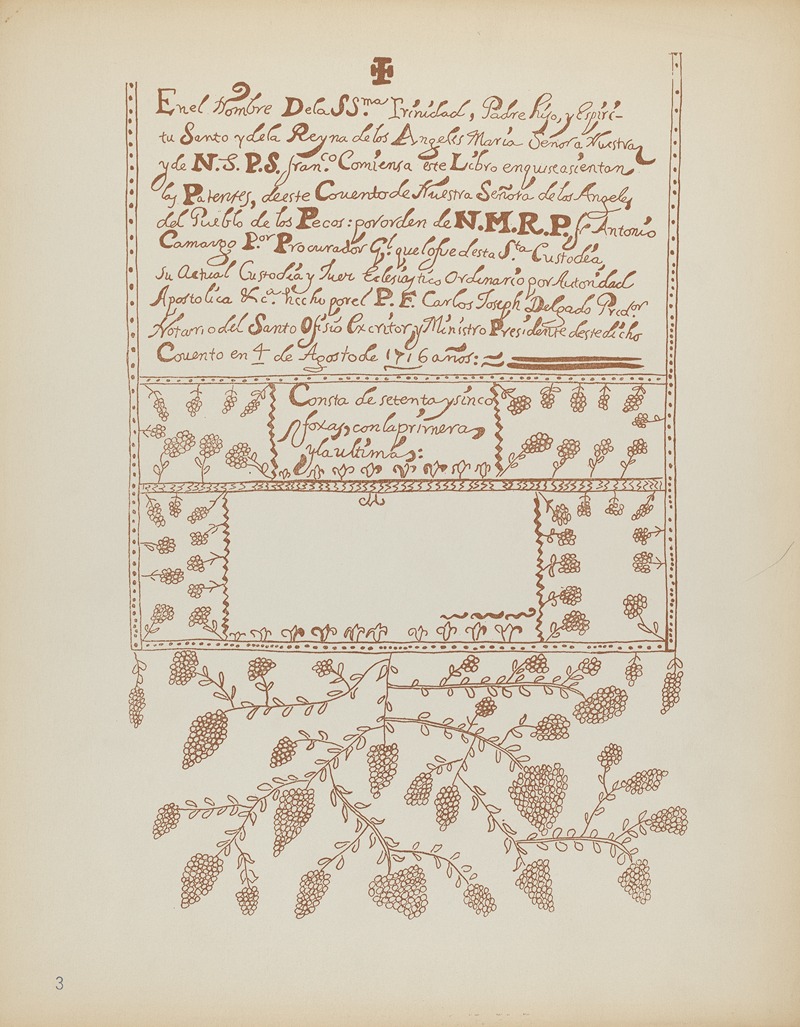 En el Nombre De la SS.ma Trinidad, Padre hijo, y Espiri-
tu Santo y de la Reyna de los Angeles Maria Señora Nuestra
y de N. S. P. S. fran.co Comiensa este Libro en quiseasientan
las Patentes, de este Couento de Nuestra Señora de los Angeles
del Pueblo de los Pecos: por orden de N. M. R. P. fr Antonio
Camargo P.or Procurador G.l que lo fue desta S.ta Custodia,
Su Actual Custodia y Juez Eclesiastico Ordinario por Autoridad
Apostolica &c.a hecho por el P. F. Carlos Joseph Delgado Pred.or
Notario del Santo Ofisio Excritor, y Ministro Presidente deste dicho
Couento en 4 de Agosto de 1716 años:
Consta de setenta y sinco
foxas, con la primera,
y la ultima,:
3